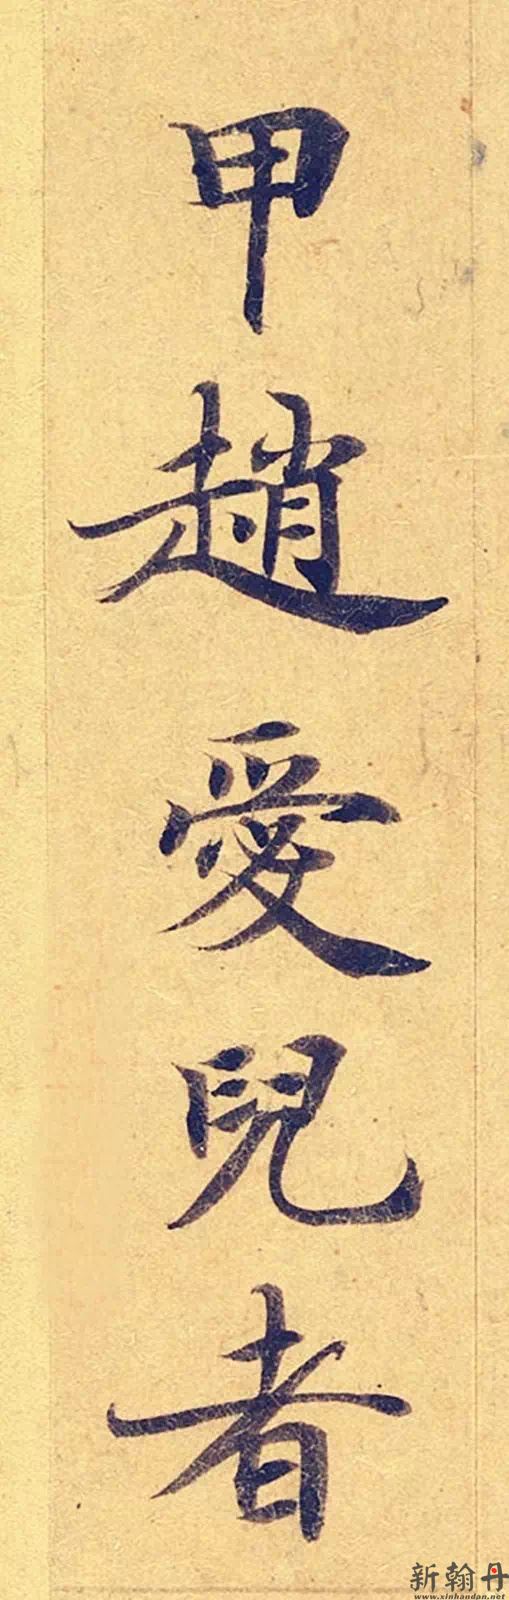 甲趙愛兒者
新翰丹
www.xinhandan.net